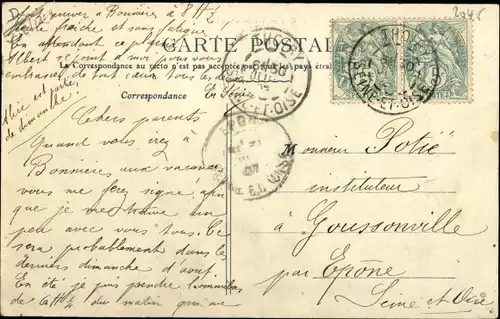 2045
Bonnières à 8 H ½
fraiche et sans fatigue
En attendant ce
Albert se joint à moi pour vous
embrasser de tout cœur tous les deux
Alice est partie
de dimanche
CARTE POSTALE
La Correspondance au recto n'est pas acceptée par tous les pays étrangers
Correspondance
SEINE-ET-OISE
SEINE-ET-OISE
Chers parents
Quand vous irez à
Bonnières aux vacances
vous me ferez signe afin
que je me trouve un
peu avec vous tous. Ce
sera probablement dans les
derniers dimanche d'août.
En été je puis prendre
de 6 H ½ du matin qui me
Monsieur Potié
instituteur
à Goussonville
par Epône
Seine et Oise